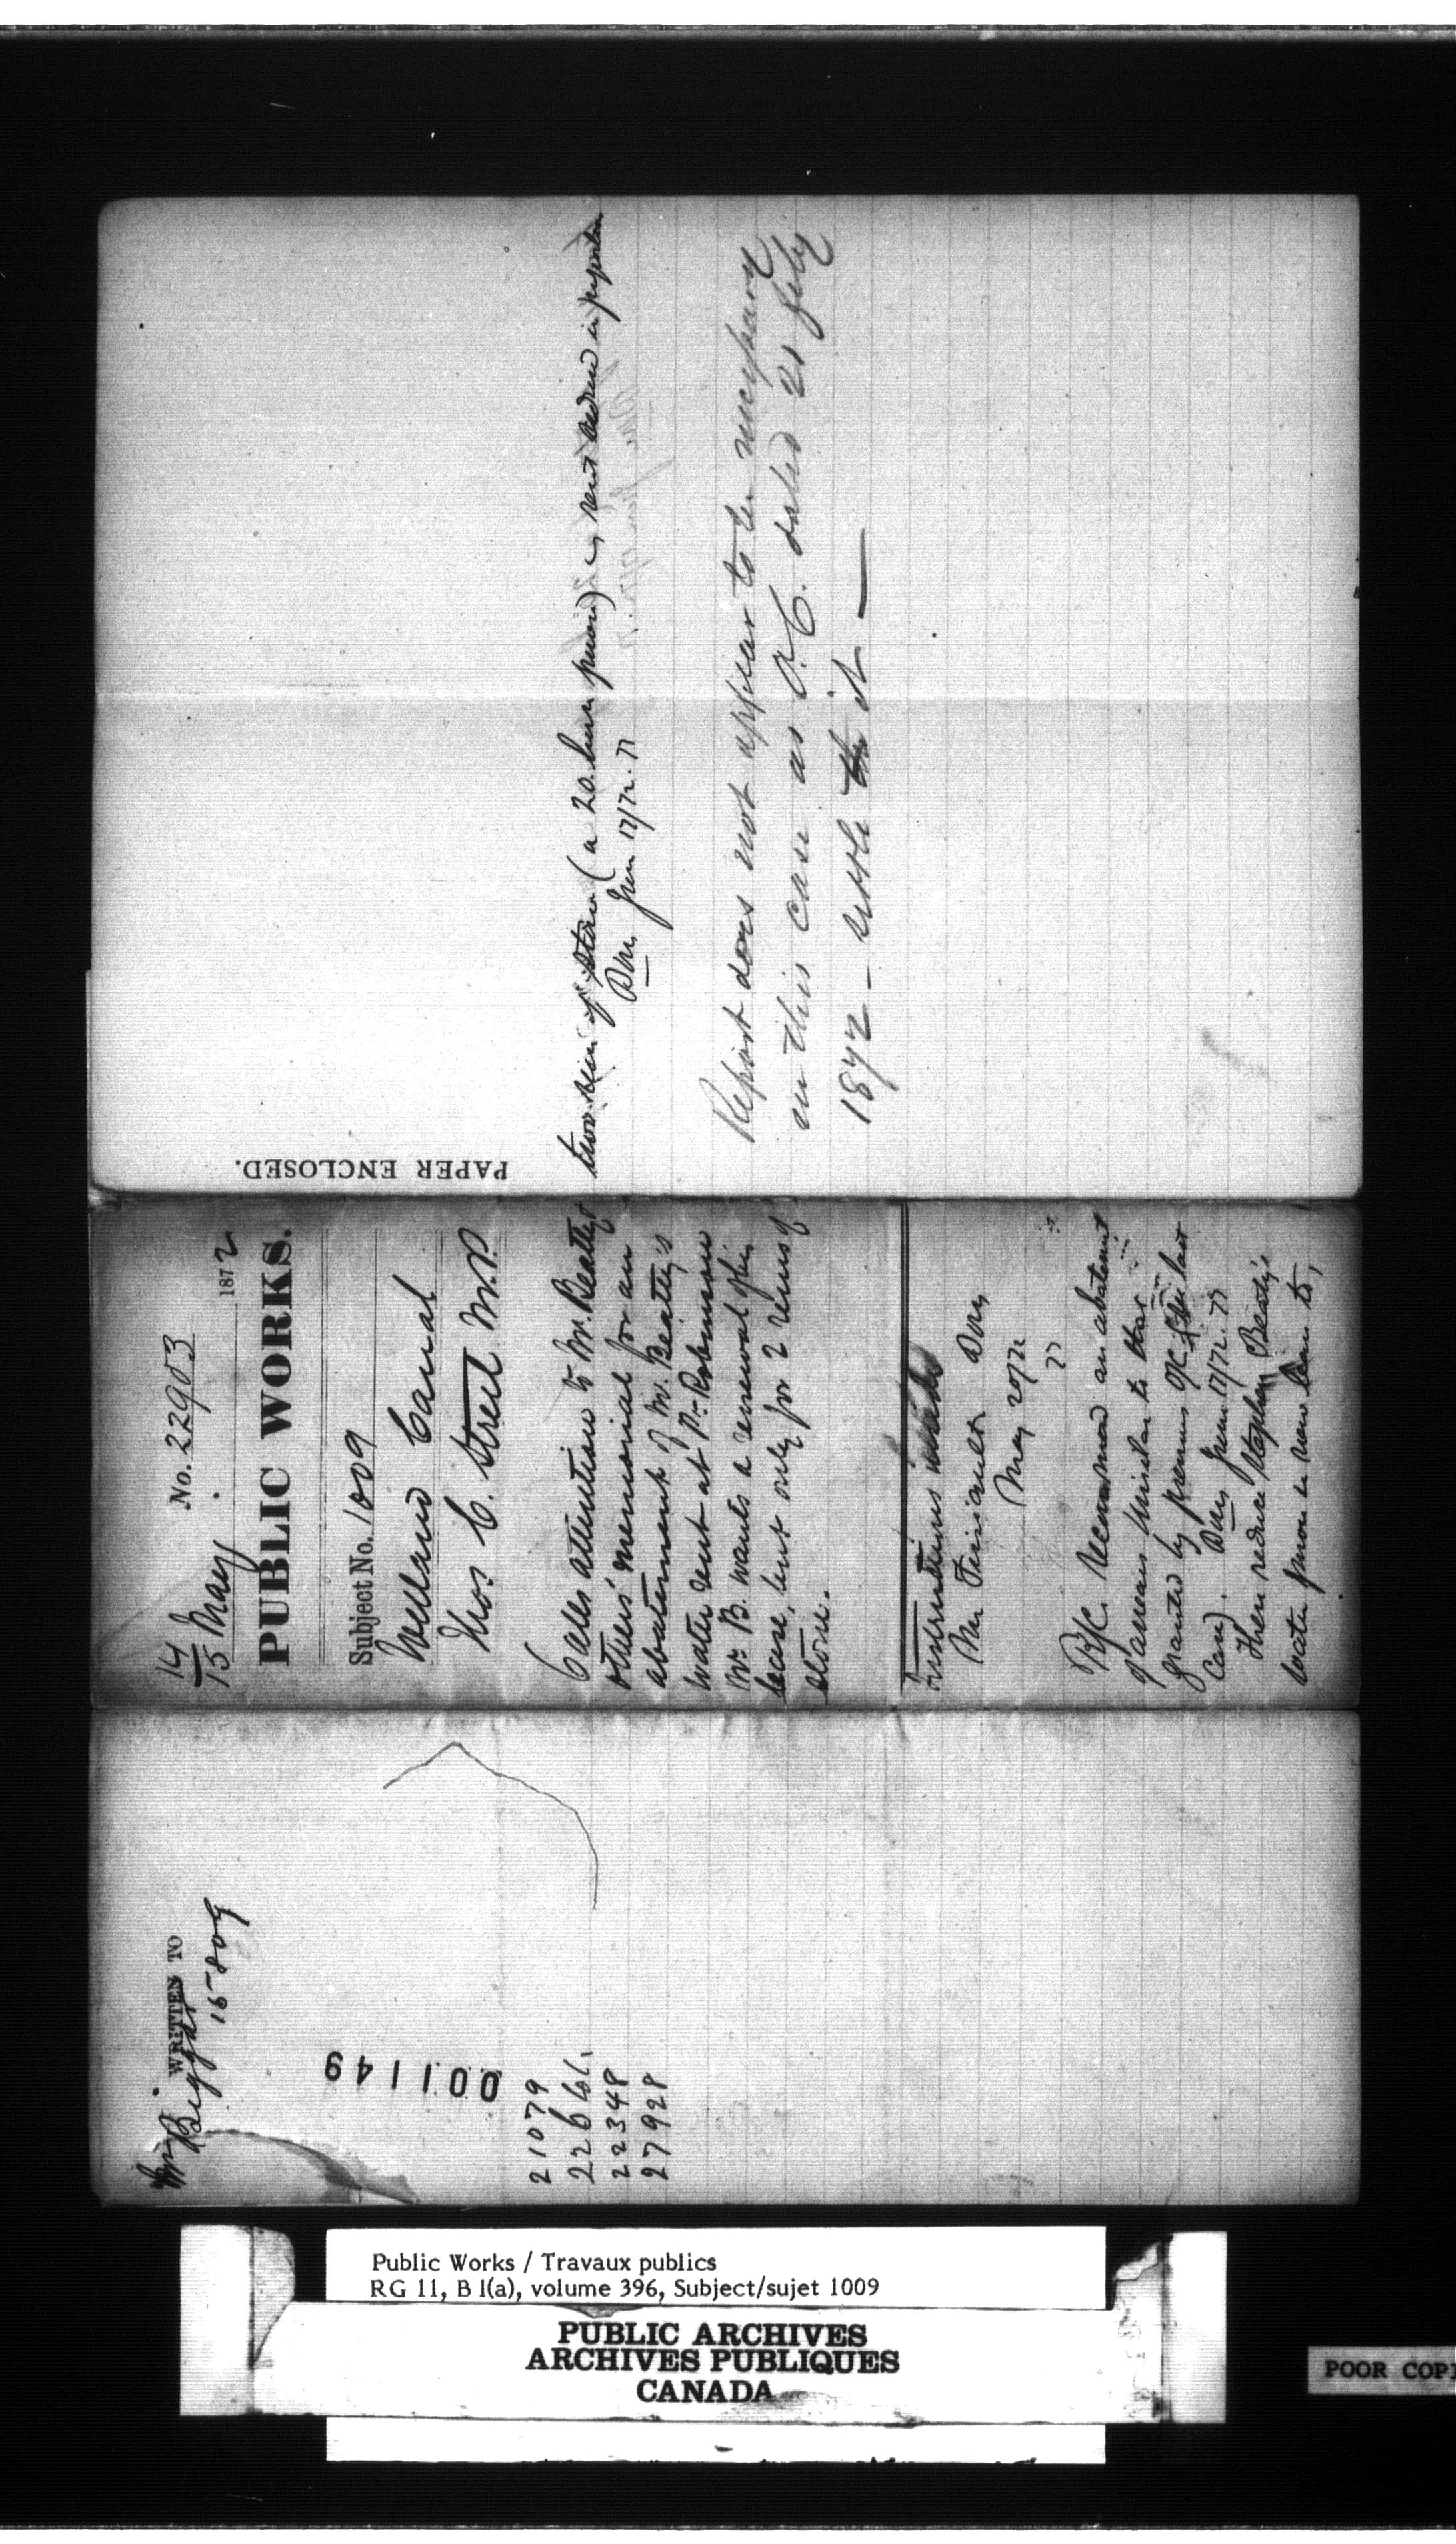 14
15 May 1872
No. 22903
PUBLIC WORKS.
Subject No. 1009
Welland Canal
Thos C. Street M.P.
Calls attention to Mr. Beatty &
others' memorial for an
abatement of Mr. Beatty's
water rent at Pt. Robinson
Mr. B. wants a renewal of his
lease, but only for 2 runs of
stone.
Mr
May 20/72
R/C. Recommend an abatement
of arrears similar to that
granted by previous O/C.
case). June 17/72.
Then reduce Stephen Beatty's
water power in new lease to,
two runs of stone (a 20 horse power) & rent reduced in proportion
June 17/72.
Report does not appear to be necessary
in this case as O.C. dated 21 Feby
1872 - settle it —
PAPER ENCLOSED.
WRITTEN TO
Mr Biggar
15809
001149
21079
22661
22348
27928
Public Works / Travaux publics
RG 11, B 1(a), volume 396, Subject/sujet 1009
PUBLIC ARCHIVES
ARCHIVES PUBLIQUES
CANADA
POOR COPI